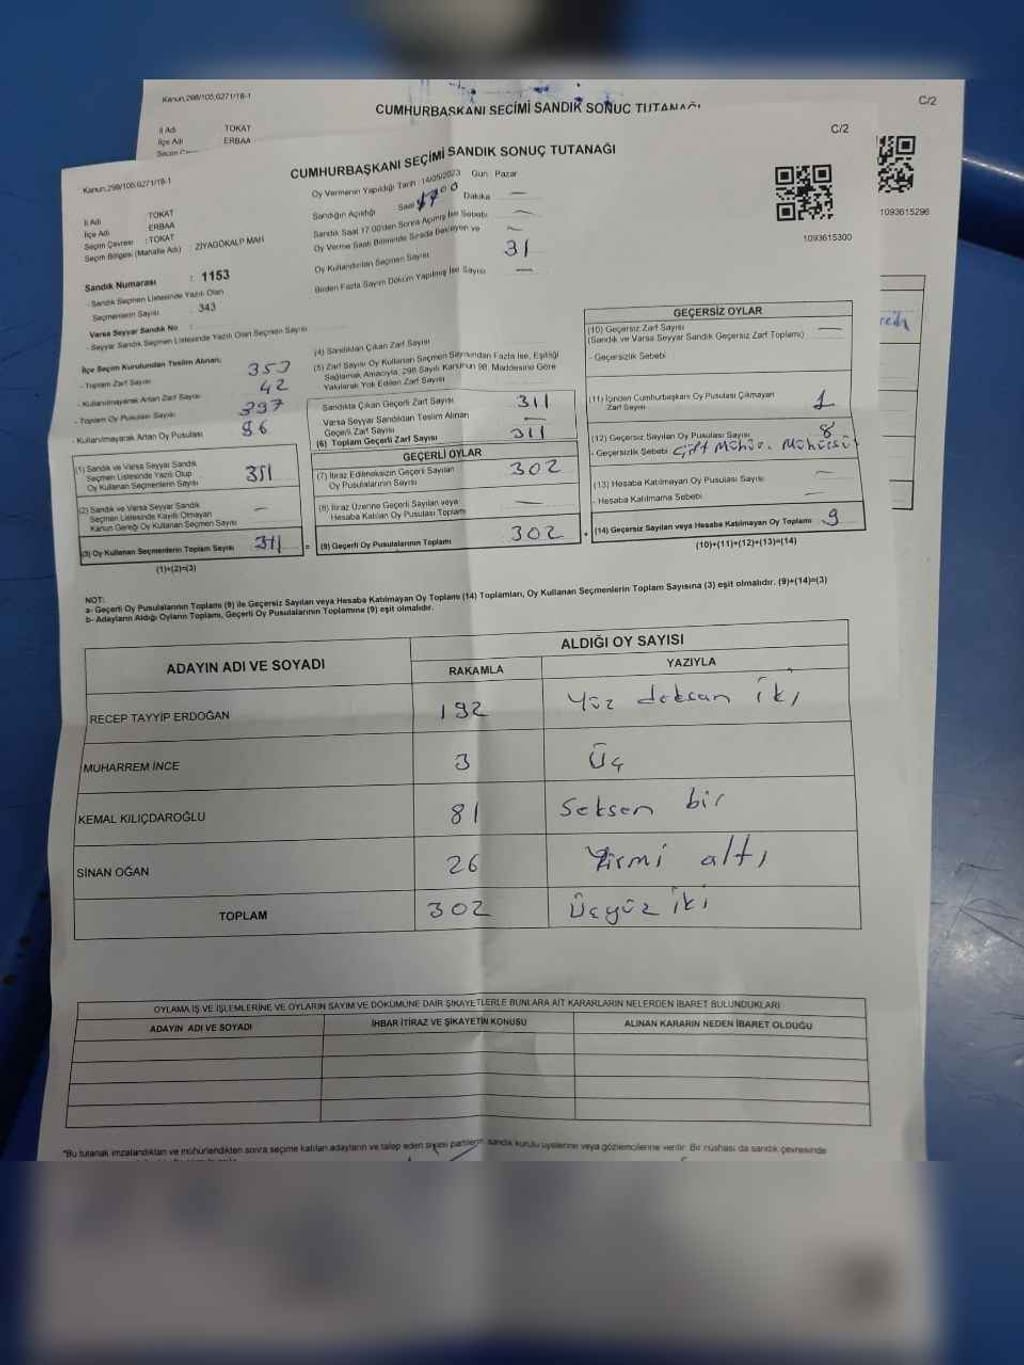 Kanun:298/105;6271/18-1
CUMHURBAŞKANI SEÇİMİ SANDIK SONUÇ TUTANAĞI
C/2
İl Adı TOKAT
İlçe Adı ERBAA
1093615296
Kanun:298/105;6271/18-1
CUMHURBAŞKANI SEÇİMİ SANDIK SONUÇ TUTANAĞI
C/2
1093615300
İl Adı TOKAT
İlçe Adı ERBAA
Seçim Çevresi : TOKAT
Seçim Bölgesi (Mahalle Adı) : ZİYAGÖKALP MAH
Sandık Numarası : 1153
- Sandık Seçmen Listesinde Yazılı Olan
Seçmenlerin Sayısı : 343
Varsa Seyyar Sandık No :
- Seyyar Sandık Seçmen Listesinde Yazılı Olan Seçmen Sayısı
Oy Vermenin Yapıldığı Tarih : 14/05/2023 Gün : Pazar
Sandığın Açıldığı Saat 1700 Dakika —
Sandık Saat 17.00'den Sonra Açılmış İse Sebebi —
Oy Verme Saati Bitiminde Sırada Bekleyen ve
Oy Kullandırılan Seçmen Sayısı 31
Birden Fazla Sayım Döküm Yapılmış İse Sayısı —
İlçe Seçim Kurulundan Teslim Alınan;
- Toplam Zarf Sayısı 353
- Kullanılmayarak Artan Zarf Sayısı 42
- Toplam Oy Pusulası Sayısı 397
- Kullanılmayarak Artan Oy Pusulası 86
(1) Sandık ve Varsa Seyyar Sandık
Seçmen Listesinde Yazılı Olup
Oy Kullanan Seçmenlerin Sayısı 311
(2) Sandık ve Varsa Seyyar Sandık
Seçmen Listesinde Kayıtlı Olmayan
Kanun Gereği Oy Kullanan Seçmen Sayısı —
(3) Oy Kullanan Seçmenlerin Toplam Sayısı 311
(1)+(2)=(3)
(4) Sandıktan Çıkan Zarf Sayısı
(5) Zarf Sayısı Oy Kullanan Seçmen Sayısından Fazla İse, Eşitliği
Sağlamak Amacıyla, 298 Sayılı Kanunun 98. Maddesine Göre
Yakılarak Yok Edilen Zarf Sayısı
Sandıkta Çıkan Geçerli Zarf Sayısı 311
Varsa Seyyar Sandıktan Teslim Alınan
Geçerli Zarf Sayısı —
(6) Toplam Geçerli Zarf Sayısı 311
GEÇERLİ OYLAR
(7) İtiraz Edilmeksizin Geçerli Sayılan
Oy Pusulalarının Sayısı 302
(8) İtiraz Üzerine Geçerli Sayılan veya
Hesaba Katılan Oy Pusulası Toplamı —
= (9) Geçerli Oy Pusulalarının Toplamı 302
GEÇERSİZ OYLAR
(10) Geçersiz Zarf Sayısı —
(Sandık ve Varsa Seyyar Sandık Geçersiz Zarf Toplamı)
- Geçersizlik Sebebi
(11) İçinden Cumhurbaşkanı Oy Pusulası Çıkmayan
Zarf Sayısı 1
(12) Geçersiz Sayılan Oy Pusulası Sayısı 8
- Geçersizlik Sebebi Çift Mühür. Mühürsüz
(13) Hesaba Katılmayan Oy Pusulası Sayısı —
- Hesaba Katılmama Sebebi —
+ (14) Geçersiz Sayılan veya Hesaba Katılmayan Oy Toplamı 9
(10)+(11)+(12)+(13)=(14)
NOT:
a- Geçerli Oy Pusulalarının Toplamı (9) ile Geçersiz Sayılan veya Hesaba Katılmayan Oy Toplamı (14) Toplamları, Oy Kullanan Seçmenlerin Toplam Sayısına (3) eşit olmalıdır. (9)+(14)=(3)
b- Adayların Aldığı Oyların Toplamı, Geçerli Oy Pusulalarının Toplamına (9) eşit olmalıdır.
ADAYIN ADI VE SOYADI ALDIĞI OY SAYISI
RAKAMLA YAZIYLA
RECEP TAYYİP ERDOĞAN 192 Yüz doksan iki
MUHARREM İNCE 3 Üç
KEMAL KILIÇDAROĞLU 81 Seksen bir
SİNAN OĞAN 26 Yirmi altı
TOPLAM 302 Üçyüz iki
OYLAMA İŞ VE İŞLEMLERİNE VE OYLARIN SAYIM VE DÖKÜMÜNE DAİR ŞİKAYETLERLE BUNLARA AİT KARARLARIN NELERDEN İBARET BULUNDUKLARI
ADAYIN ADI VE SOYADI İHBAR İTİRAZ VE ŞİKAYETİN KONUSU ALINAN KARARIN NEDEN İBARET OLDUĞU
"Bu tutanak imzalandıktan ve mühürlendikten sonra seçime katılan adayların ve talep eden siyasi partilerin sandık kurulu üyelerine veya gözlemcilerine verilir. Bir nüshası da sandık çevresinde